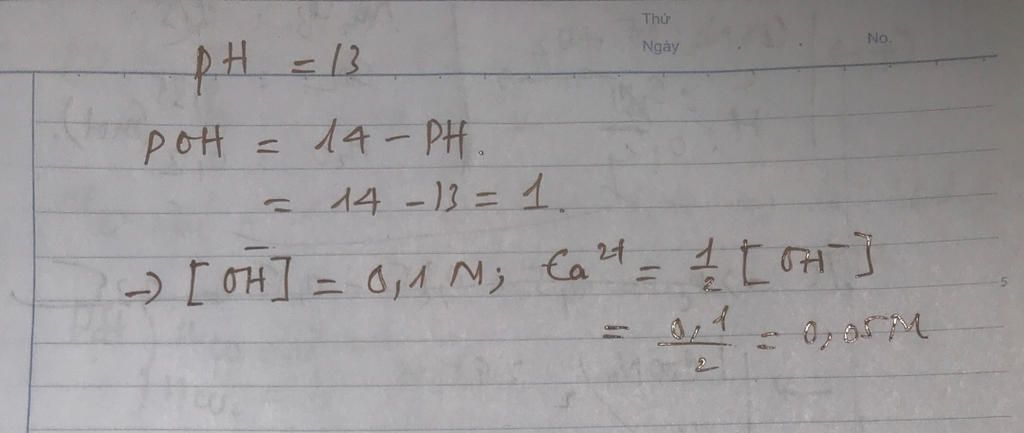 Thứ
Ngày . . No.
pH = 13
pOH = 14 - PH.
= 14 - 13 = 1.
→ [OH⁻] = 0,1 M; Ca²⁺ = 1/2 [OH⁻]
= 0,1/2 = 0,05M
5